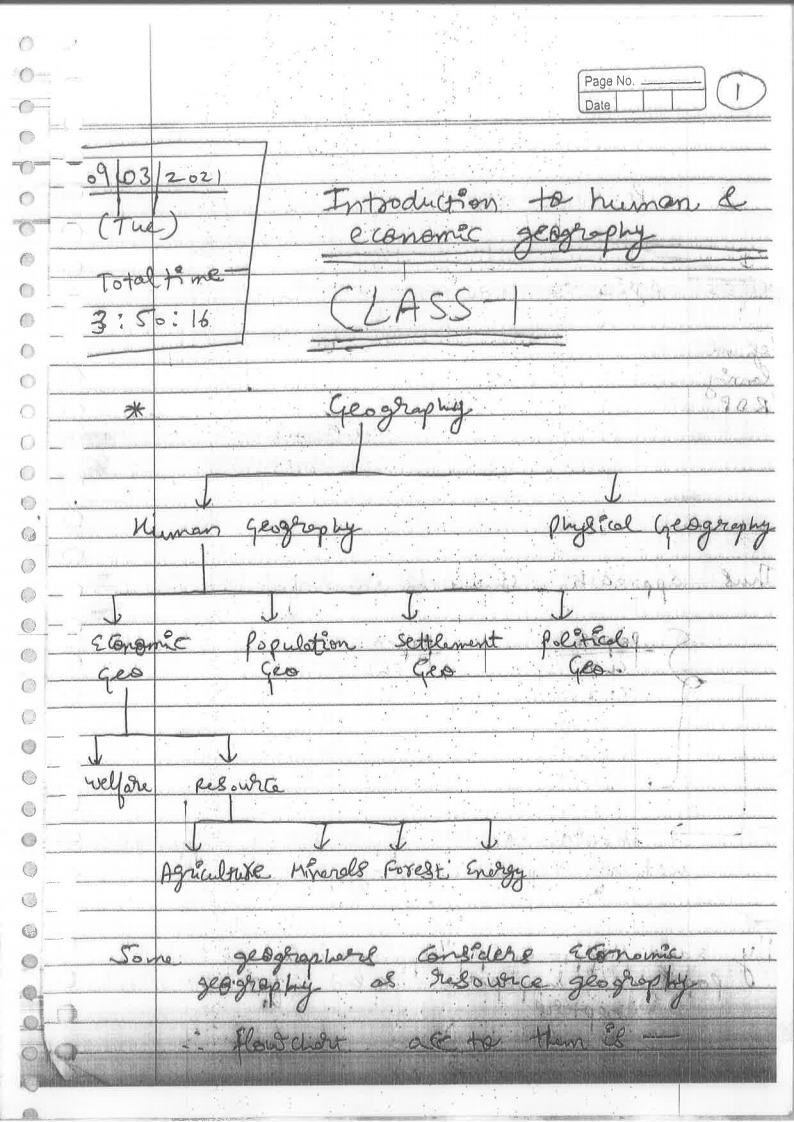 Page No.
Date
1
09/03/2021
(Tue)
Total time —
3:50:16
Introduction to human &
economic geography
CLASS-1
* Geography
Human Geography Physical Geography
Economic Population Settlement Political
Geo Geo Geo Geo
Welfare Resource
Agriculture Minerals Forest Energy
Some geographers considers Economic
geography as resource geography
∴ flowchart acc to them is —